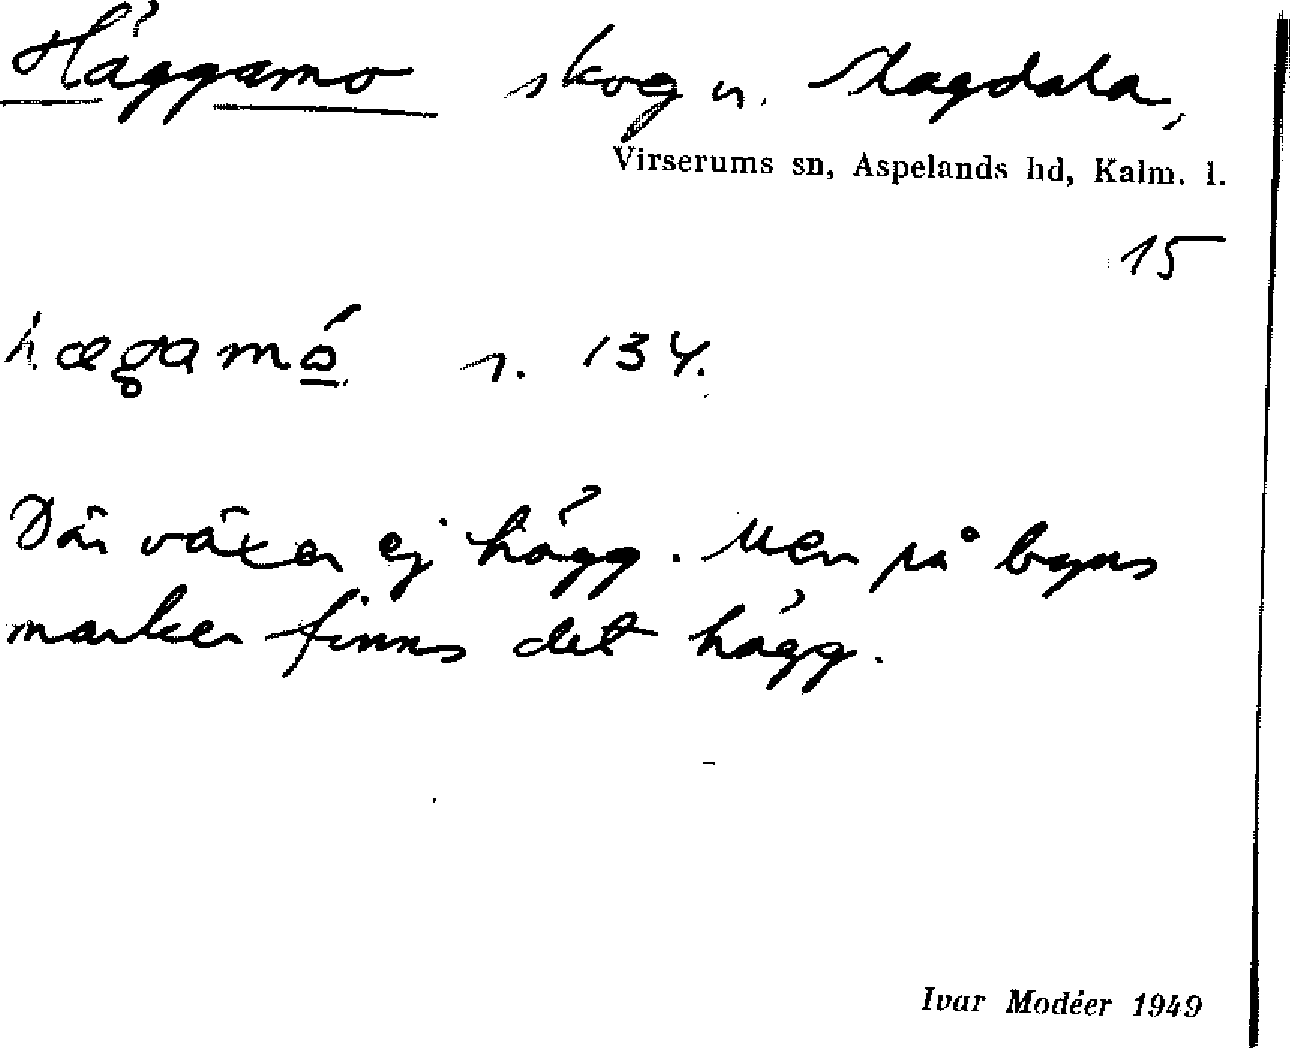 Häggamo skog n. Magdala,
Virserums sn, Aspelands hd, Kalm. l.
15
hægamó s. 134.
Där växer ej hägg. Men på byns
marker finns det hägg.
Ivar Modéer 1949